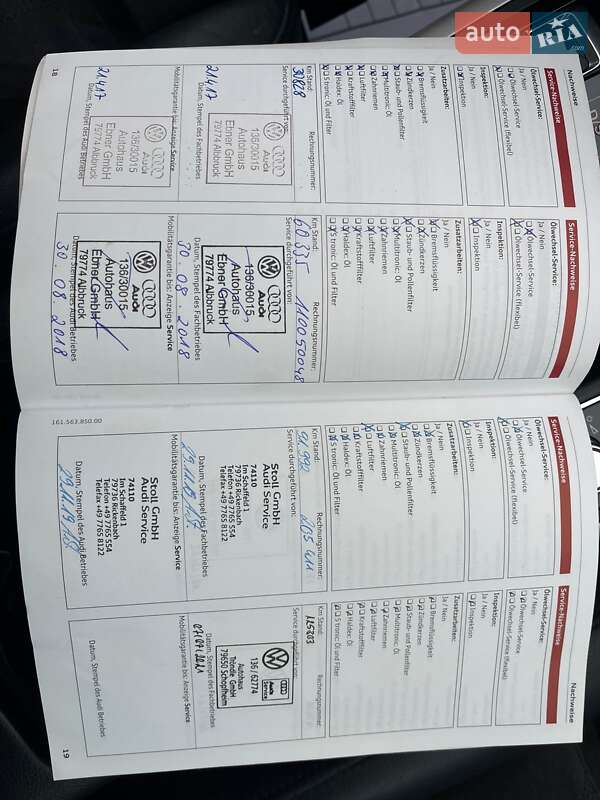 auto RIA .com
Nachweise
Service-Nachweise
Ölwechsel-Service:
Ja / Nein
Ölwechsel-Service
Ölwechsel-Service (flexibel)
Inspektion:
Ja / Nein
Inspektion
Zusatzarbeiten:
Ja / Nein
Bremsflüssigkeit
Zündkerzen
Staub- und Pollenfilter
Multitronic: Öl
Zahnriemen
Luftfilter
Kraftstofffilter
Haldex: Öl
S tronic: Öl und Filter
Km Stand: Rechnungsnummer:
30828
Service durchgeführt von:
Audi
136/30015
Autohaus
Ebner GmbH
79774 Albbruck
21.4.17
Datum, Stempel des Fachbetriebes
Mobilitätsgarantie bis: Anzeige Service
Audi
136/30015
Autohaus
Ebner GmbH
79774 Albbruck
21.4.17
Datum, Stempel des Audi Betriebes
18
Service-Nachweise
Ölwechsel-Service:
Ja / Nein
Ölwechsel-Service
Ölwechsel-Service (flexibel)
Inspektion:
Ja / Nein
Inspektion
Zusatzarbeiten:
Ja / Nein
Bremsflüssigkeit
Zündkerzen
Staub- und Pollenfilter
Multitronic: Öl
Zahnriemen
Luftfilter
Kraftstofffilter
Haldex: Öl
S tronic: Öl und Filter
Km Stand: Rechnungsnummer:
60.335 1100050048
Service durchgeführt von:
Audi
136/30015
Autohaus
Ebner GmbH
79774 Albbruck
30.08.2018
Datum, Stempel des Fachbetriebes
Mobilitätsgarantie bis: Anzeige Service
Audi
136/30015
Autohaus
Ebner GmbH
79774 Albbruck
30 08 2018
Datum, Stempel des Audi Betriebes
161.563.850.00
Service-Nachweise
Ölwechsel-Service:
Ja / Nein
Ölwechsel-Service
Ölwechsel-Service (flexibel)
Inspektion:
Ja / Nein
Inspektion
Zusatzarbeiten:
Ja / Nein
Bremsflüssigkeit
Zündkerzen
Staub- und Pollenfilter
Multitronic: Öl
Zahnriemen
Luftfilter
Kraftstofffilter
Haldex: Öl
S tronic: Öl und Filter
Km Stand: Rechnungsnummer:
Service durchgeführt von:
Stoll GmbH
Audi Service
74110
Im Schaffeld 1
79736 Rickenbach
Telefon +49 7765 554
Telefax +49 7765 8122
Datum, Stempel des Fachbetriebes
Mobilitätsgarantie bis: Anzeige Service
Stoll GmbH
Audi Service
74110
Im Schaffeld 1
79736 Rickenbach
Telefon +49 7765 554
Telefax +49 7765 8122
Datum, Stempel des Audi Betriebes
Nachweise
Service-Nachweise
Ölwechsel-Service:
Ja / Nein
Ölwechsel-Service
Ölwechsel-Service (flexibel)
Inspektion:
Ja / Nein
Inspektion
Zusatzarbeiten:
Ja / Nein
Bremsflüssigkeit
Zündkerzen
Staub- und Pollenfilter
Multitronic: Öl
Zahnriemen
Luftfilter
Kraftstofffilter
Haldex: Öl
S tronic: Öl und Filter
Km Stand: Rechnungsnummer:
125203
Service durchgeführt von:
Audi
Service
136 / 62774
Autohaus
GmbH
79650 Schopfheim
07.04.2021
Datum, Stempel des Fachbetriebes
Mobilitätsgarantie bis: Anzeige Service
Datum, Stempel des Audi Betriebes
19